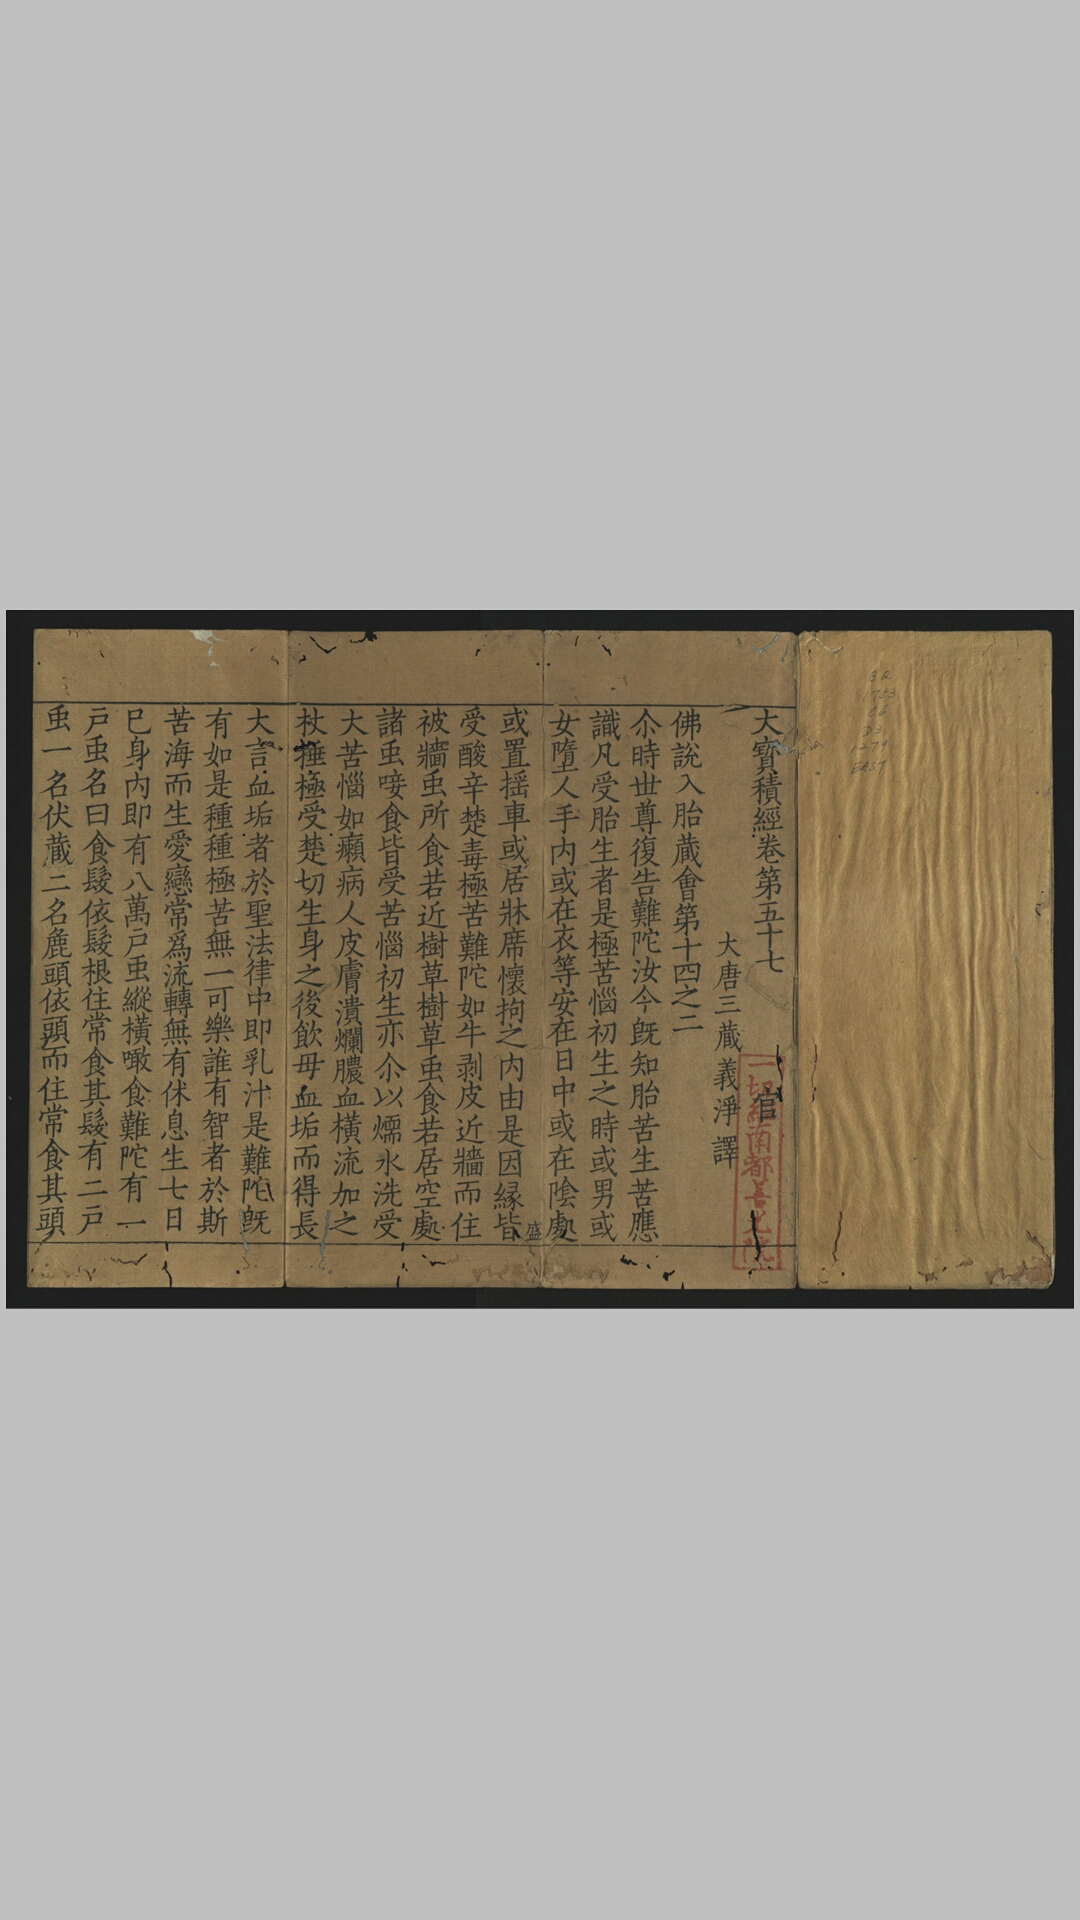 大寶積經卷第五十七
官
大唐三藏義淨譯
一切經南都善光院
佛說入胎藏會第十四之二
尒時世尊復告難陀汝今旣知胎苦生苦應
識凡受胎生者是極苦惱初生之時或男或
女墮人手內或在衣等安在日中或在陰處
盛
或置揺車或居牀席懷拘之內由是因縁皆
受酸辛楚毒極苦難陀如牛剥皮近牆而住
被牆䖝所食若近樹草樹草䖝食若居空處
諸䖝唼食皆受苦惱初生亦尒以煗水洗受
大苦惱如癩病人皮膚潰爛膿血橫流加之
杖捶極受楚切生身之後飲母血垢而得長
大言血垢者於聖法律中即乳汁是難陀旣
有如是種種極苦無一可樂誰有智者於斯
苦海而生愛戀常爲流轉無有休息生七日
已身內即有八萬戸䖝縱橫噉食難陀有一
戸䖝名曰食髮依髮根住常食其髮有二戸
䖝一名伏藏二名麁頭依頭而住常食其頭
BQ
1753
C6
D3
1279
EAST